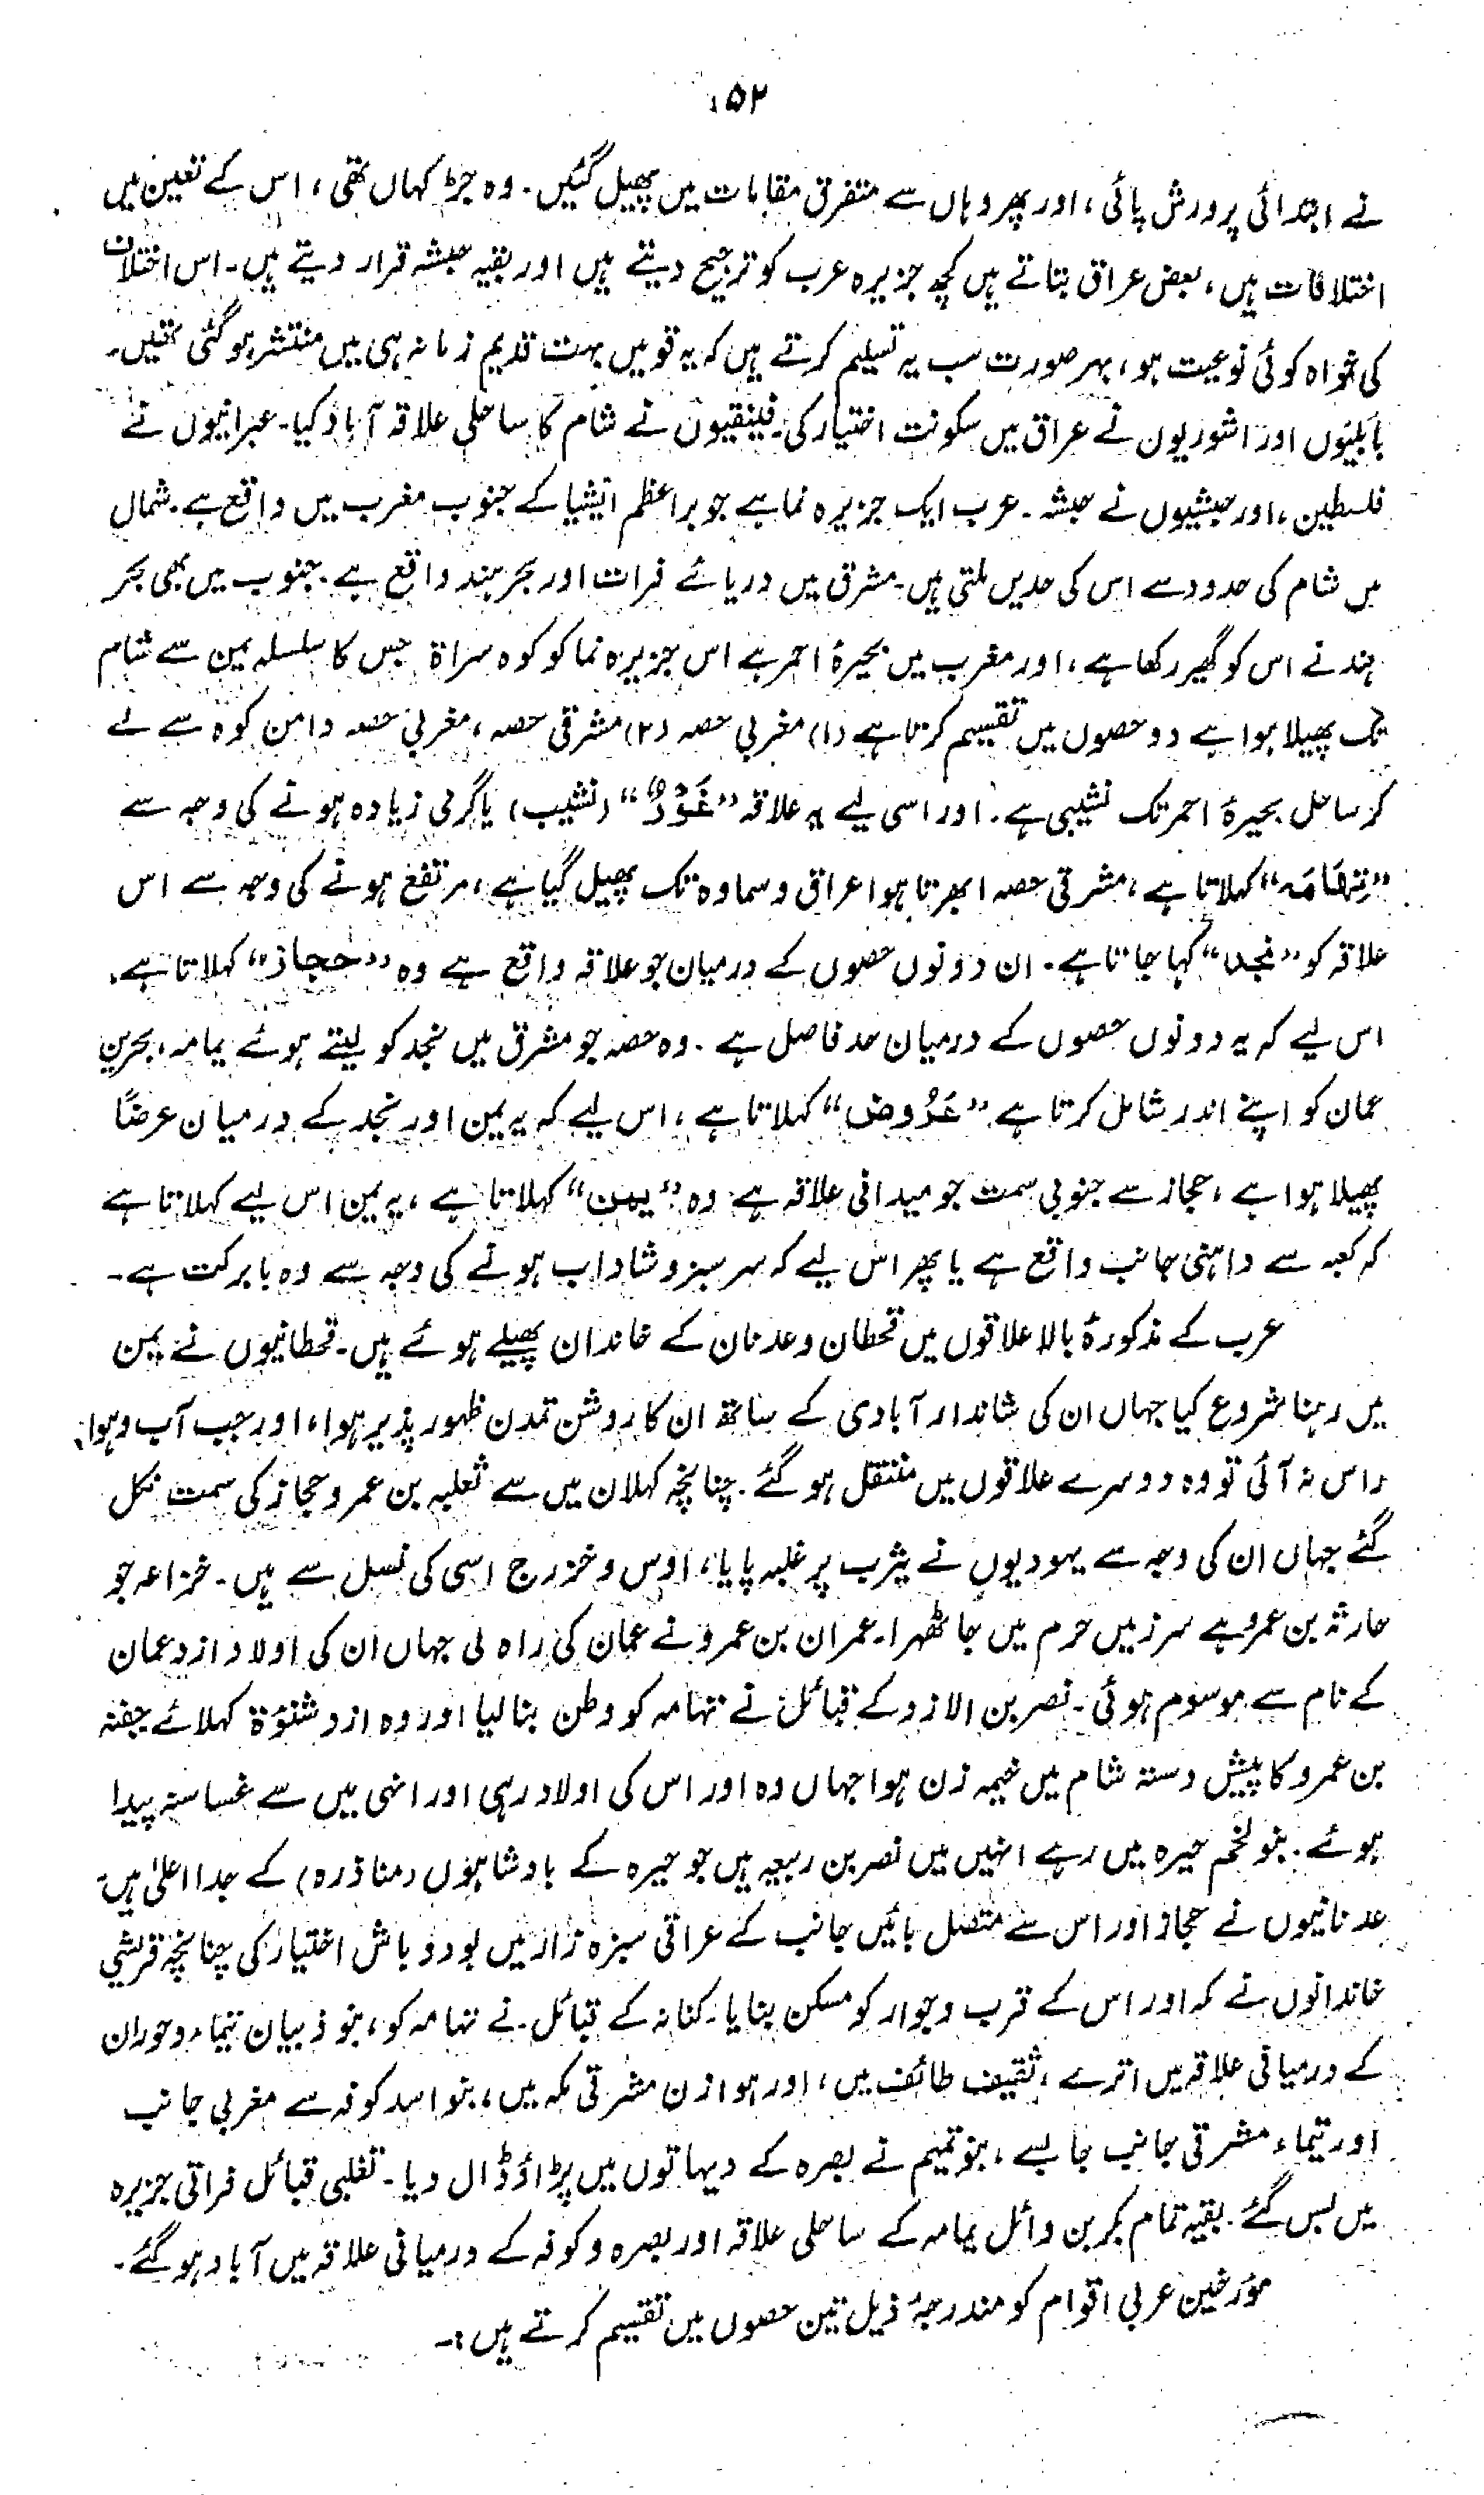 ۵۲
نے ابتدائی پرورش پائی، اور پھر وہاں سے متفرق مقامات میں پھیل گئیں۔ وہ جڑ کہاں تھی، اس کے تعین میں
اختلافات ہیں، بعض عراق بتاتے ہیں کچھ جزیرہ عرب کو ترجیح دیتے ہیں اور بقیہ حبشہ قرار دیتے ہیں۔ اس اختلاف
کی خواہ کوئی نوعیت ہو، بہر صورت سب یہ تسلیم کرتے ہیں کہ یہ قومیں بہت قدیم زمانہ ہی میں منتشر ہو گئی تھیں۔
بابلیوں اور اشوریون نے عراق میں سکونت اختیار کی۔ فینقیون نے شام کا ساحلی علاقہ آباد کیا۔ عبرانیوں نے
فلسطین، اور حبشیوں نے حبشہ۔ عرب ایک جزیرہ نما ہے جو براعظم ایشیا کے جنوب مغرب میں واقع ہے۔ شمال
میں شام کی حدود سے اس کی حدیں ملتی ہیں۔ مشرق میں دریائے فرات اور بحر ہند واقع ہے۔ جنوب میں بھی بحر
ہند نے اس کو گھیر رکھا ہے، اور مغرب میں بحیرۂ احمر ہے اس جزیرہ نما کو کوہ سراۃ جس کا سلسلہ یمن سے شام
تک پھیلا ہوا ہے دو حصوں میں تقسیم کرتا ہے (۱) مغربی حصہ (۲) مشرقی حصہ، مغربی حصہ دامن کوہ سے لے
کر ساحل بحیرۂ احمر تک نشیبی ہے۔ اور اسی لیے یہ علاقہ ”غَوْرٌ“ (نشیب) یا گرمی زیادہ ہونے کی وجہ سے
”تِہَامَہ“ کہلاتا ہے، مشرقی حصہ ابھرتا ہوا عراق و سماوہ تک پھیل گیا ہے، مرتفع ہونے کی وجہ سے اس
علاقہ کو ”نجد“ کہا جاتا ہے۔ ان دونوں حصوں کے درمیان جو علاقہ واقع ہے وہ ”حجاز“ کہلاتا ہے۔
اس لیے کہ یہ دونوں حصوں کے درمیان حد فاصل ہے۔ وہ حصہ جو مشرق میں نجد کو لیتے ہوئے یمامہ، بحرین
عمان کو اپنے اندر شامل کرتا ہے ”عَرُوض“ کہلاتا ہے، اس لیے کہ یہ یمن اور نجد کے درمیان عرضًا
پھیلا ہوا ہے، حجاز سے جنوبی سمت جو میدانی علاقہ ہے وہ ”یمن“ کہلاتا ہے، یہ یمن اس لیے کہلاتا ہے
کہ کعبہ سے داہنی جانب واقع ہے یا پھر اس لیے کہ سرسبز و شاداب ہونے کی وجہ سے وہ بابرکت ہے۔
عرب کے مذکورۂ بالا علاقوں میں قحطان و عدنان کے خاندان پھیلے ہوئے ہیں۔ قحطانیوں نے یمن
میں رہنا شروع کیا جہاں ان کی شاندار آبادی کے ساتھ ان کا روشن تمدن ظہور پذیر ہوا، اور جب آب و ہوا
راس نہ آئی تو وہ دوسرے علاقوں میں منتقل ہو گئے۔ چنانچہ کہلان میں سے ثعلبہ بن عمرو حجاز کی سمت نکل
گئے جہاں ان کی وجہ سے یہودیوں نے یثرب پر غلبہ پایا، اوس و خزرج اسی کی نسل سے ہیں۔ خزاعہ جو
حارثہ بن عمرو ہے سرزمین حرم میں جا ٹھہرا۔ عمران بن عمرو نے عمان کی راہ لی جہاں ان کی اولاد ازد عمان
کے نام سے موسوم ہوئی۔ نصر بن الازد کے قبائل نے تہامہ کو وطن بنا لیا اور وہ ازد شنوٗۃ کہلائے جفنہ
بن عمرو کا پیش دستہ شام میں خیمہ زن ہوا جہاں وہ اور اس کی اولاد رہی اور انہی میں سے غساسنہ پیدا
ہوئے۔ بنو لخم حیرہ میں رہے انہیں میں نصر بن ربیعہ ہیں جو حیرہ کے بادشاہوں (مناذرہ) کے جد اعلیٰ ہیں۔
عدنانیوں نے حجاز اور اس سے متصل بائیں جانب کے عراقی سبزہ زار میں بود و باش اختیار کی چنانچہ قریشی
خاندانوں نے مکہ اور اس کے قرب و جوار کو مسکن بنایا۔ کنانہ کے قبائل نے تہامہ کو، بنو ذبیان تیماء و حوران
کے درمیانی علاقہ میں اترے، ثقیف طائف میں، اور ہوازن مشرقی مکہ میں، بنو اسد کوفہ سے مغربی جانب
اور تیماء مشرقی جانب جا بسے، بنو تمیم نے بصرہ کے دیہاتوں میں پڑاؤ ڈال دیا۔ تغلبی قبائل فراتی جزیرہ
میں بس گئے۔ بقیہ تمام بکر بن وائل یمامہ کے ساحلی علاقہ اور بصرہ و کوفہ کے درمیانی علاقہ میں آباد ہو گئے۔
مؤرخین عربی اقوام کو مندرجۂ ذیل تین حصوں میں تقسیم کرتے ہیں:۔